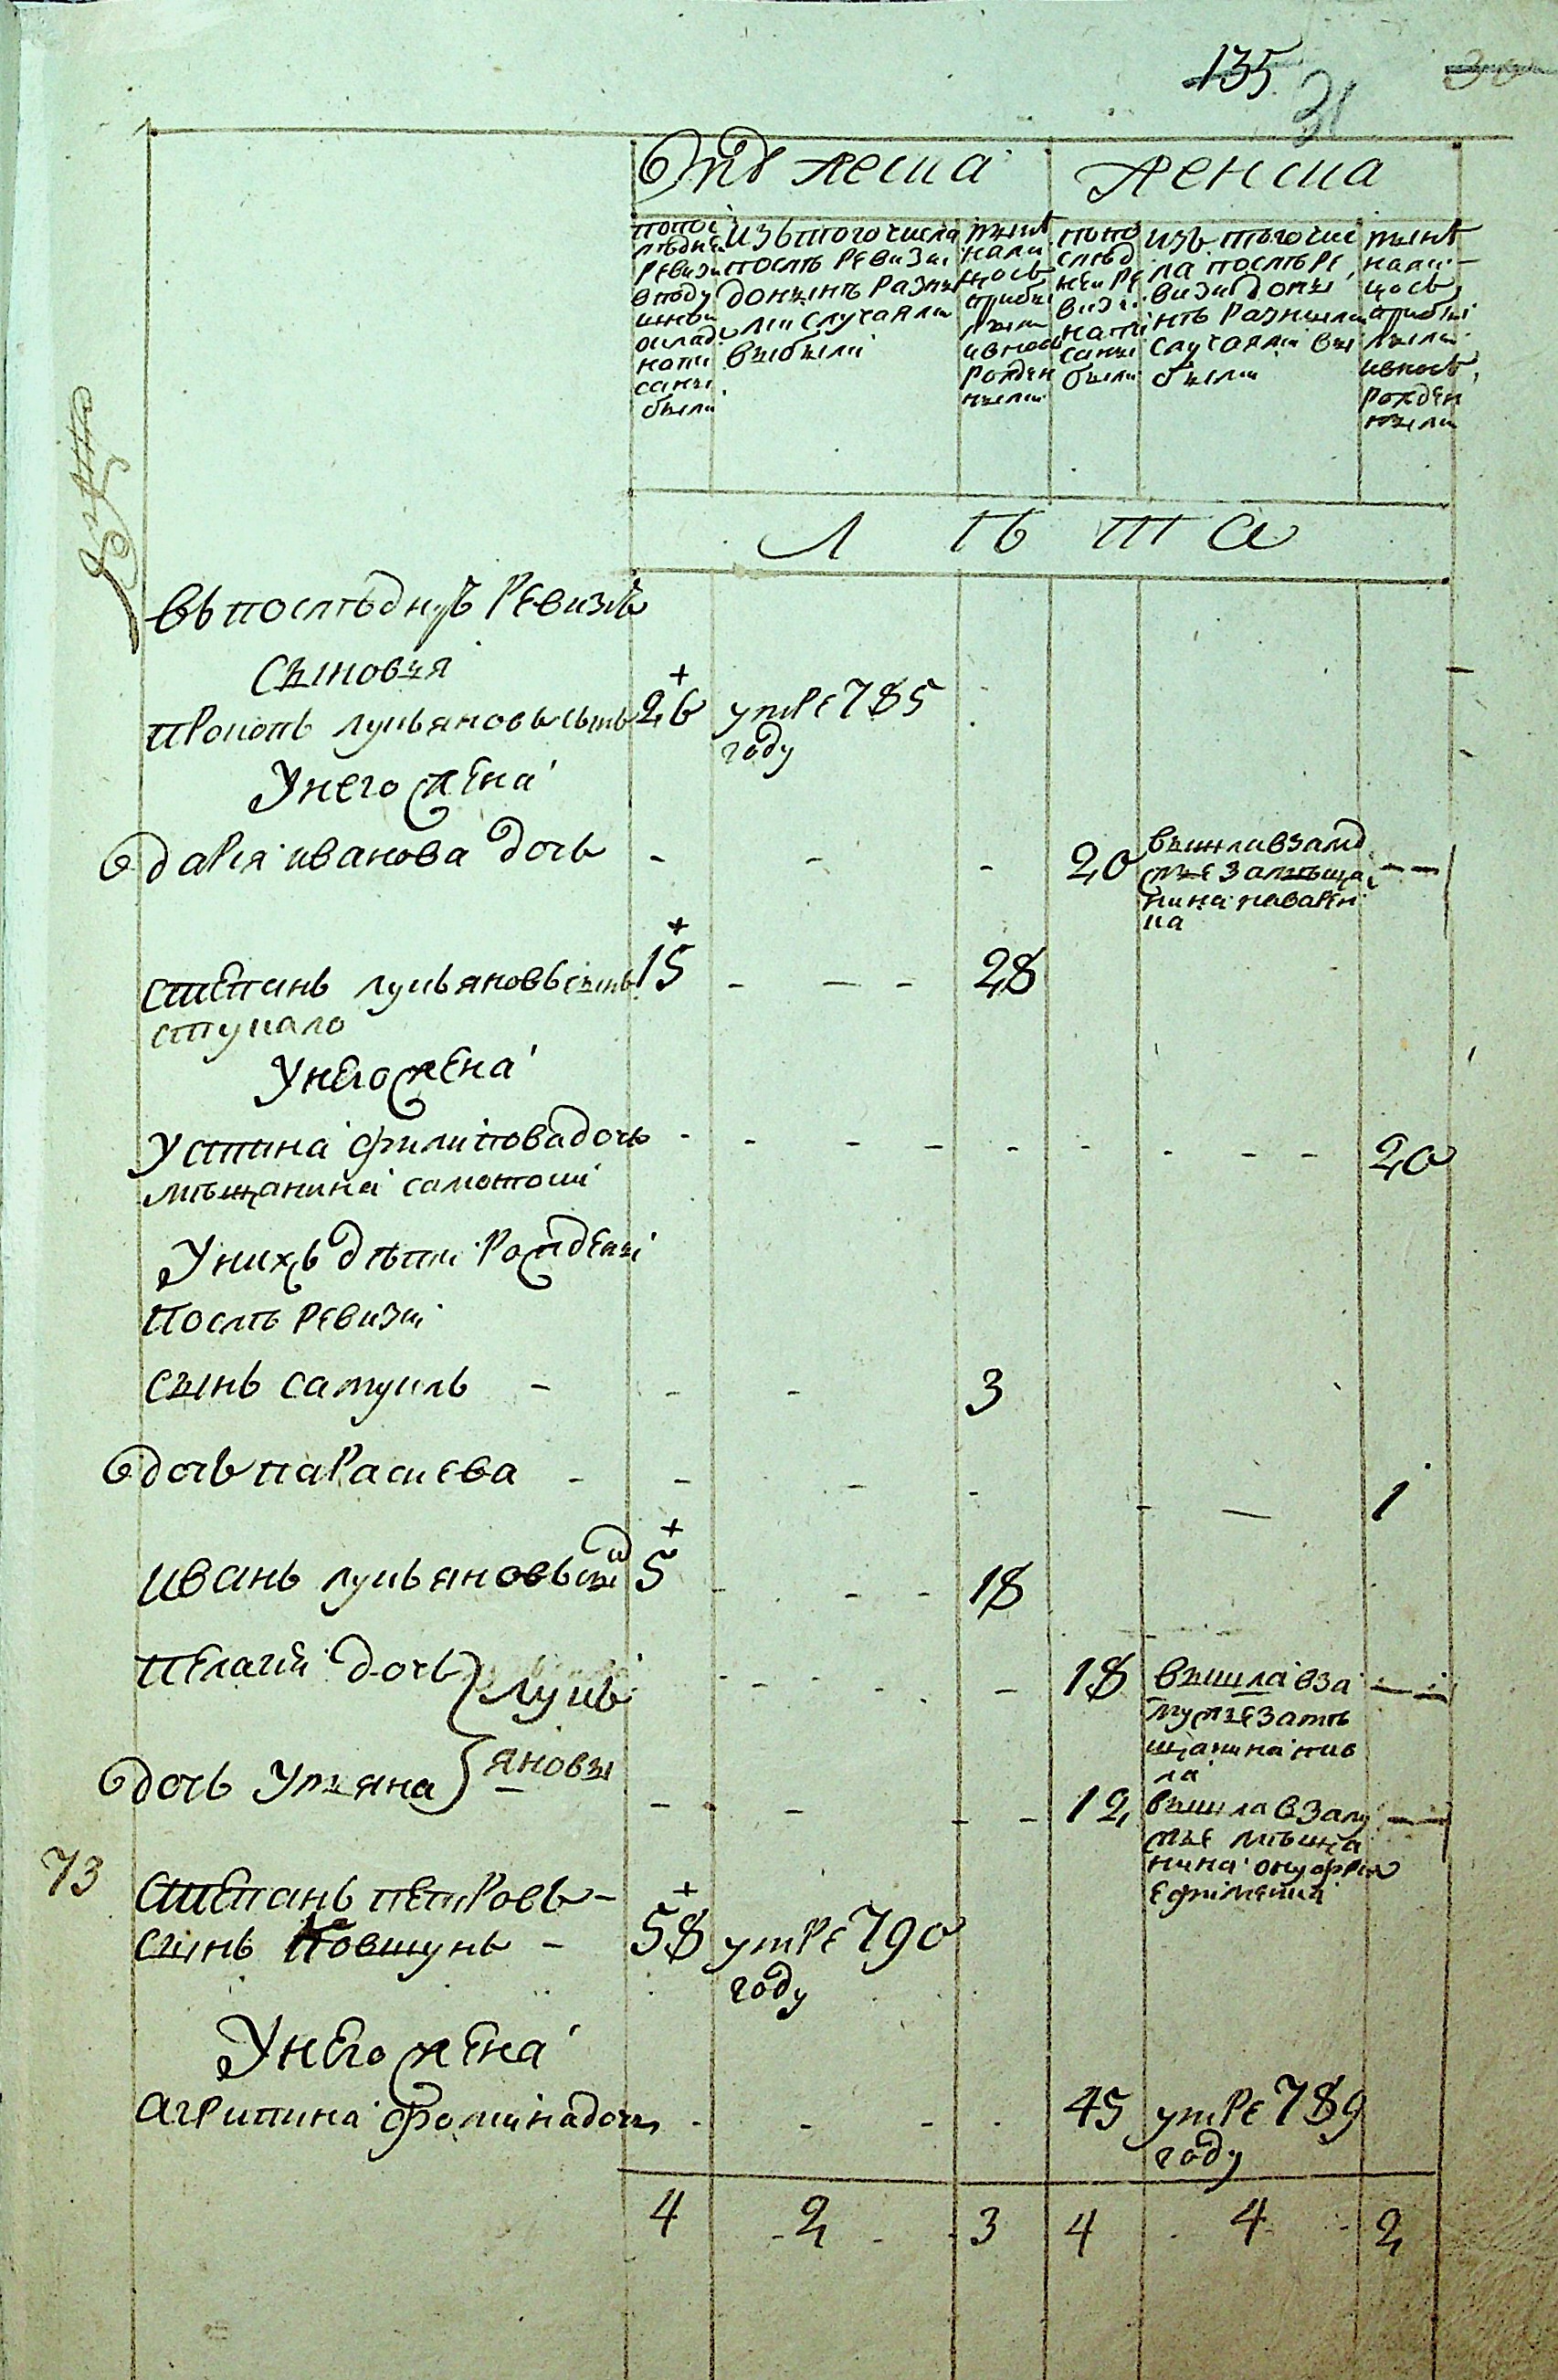 135
31
30
Мужеска
Женска
попос
лѣдне
ревизи
вподу
шном
оклад
напи
саны
были
изътого числа
послѣ ревизи
донынѣ разны
ми случаями
выбыли
нынѣ
нали
цось
прибы
лыми
ивново
рожден
ными
попо
слѣд
неи ре
визи
напи
саны
были
изъ того чис
ла послѣ ре
визи доны
нѣ разными
случаями вы
были
нынѣ
нали
цось
прибы
лыми
ивновь
рожден
ными
Л ѣ т а
въ послѣднѣ ревизѣ
сыновья
прокопъ лукьяновъ сынъ 26 умре 785
году
Унего жена
дарья иванова дочь - - - 20 вышла в замд
мже замѣща
нина наварен
ка
степанъ лукьяновъ сынъ 15 - - - 28
стукало
Унего жена
устина филипова дочь - - - - - - - - - 20
мѣщанина
Унихъ дѣти рождены
послѣ ревизи
сынъ самуилъ - - - 3
дочь параскева - - - - - — 1
иванъ лукьяновъ сы 5 - - - 18
пелагия дочь } лукь - - - - - 18 вышла вза
мужезамѣ
щанина кив
ла
дочь ульяна } яновы - - - - - 12 вышла в заму
жъе мѣща
нина онуфрия
73
степанъ петровъ -
сынъ ковшунъ - 58 умре 790
году
Унего жена
агрипина фомина дочь - - - - 45 умре 789
году
4 2 3 4 4 2